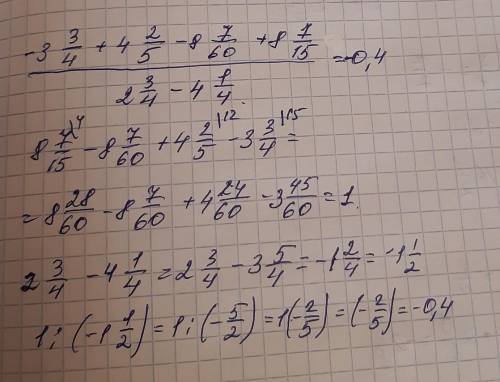 (-3 3/4 + 4 2/5 - 8 7/60 + 8 7/15) / (2 3/4 - 4 1/4) = -0,4
8 7/15 \4 - 8 7/60 + 4 2/5 |12 - 3 3/4 |15 =
= 8 28/60 - 8 7/60 + 4 24/60 - 3 45/60 = 1.
2 3/4 - 4 1/4 = 2 3/4 - 3 5/4 = -1 2/4 = -1 1/2
1 : (-1 1/2) = 1 : (-5/2) = 1(-2/5) = (-2/5) = -0,4